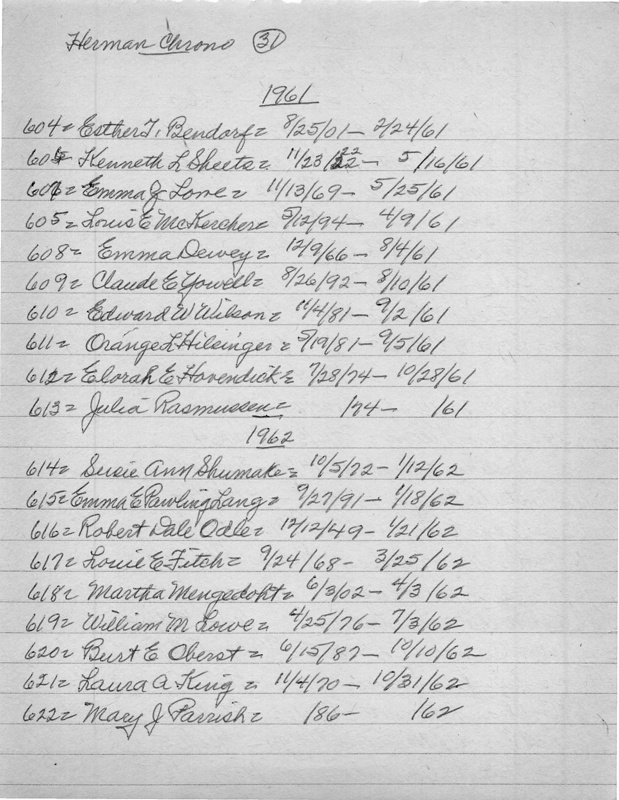 Herman Chrono 31
1961
604= Esther T. Bendorf= 8/25/01- 2/24/61
605 Kenneth L Sheets= 11/23/22- 5/16/61
606= Emma J Lowe= 11/13/69- 5/25/61
605= Louis E McKercher= 5/12/94- 4/9/61
608= Emma Dewey= 12/9/66- 8/4/61
609= Claude E Yowell= 8/26/92- 8/10/61
610= Edward W Wilson= 11/4/81- 9/2/61
611= Orange L Hilsinger= 5/19/81- 9/5/61
612= Elorah E Hovendick= 7/28/74- 10/28/61
613= Julia Rasmussen= /74- /61
1962
614= Susie Ann Shumake= 10/5/72- 1/12/62
615= Emma E Pawling Lang= 9/27/91- 1/18/62
616= Robert Dale Odle= 12/12/49- 1/21/62
617= Louie E Fitch= 9/24/68- 3/25/62
618= Martha Mengedoht= 6/3/02- 4/3/62
619= William M Lowe= 4/25/76- 7/3/62
620= Burt E Oberst= 6/15/87- 10/10/62
621= Laura A King= 11/4/70- 10/31/62
622= Mary J Parrish= /86- /62